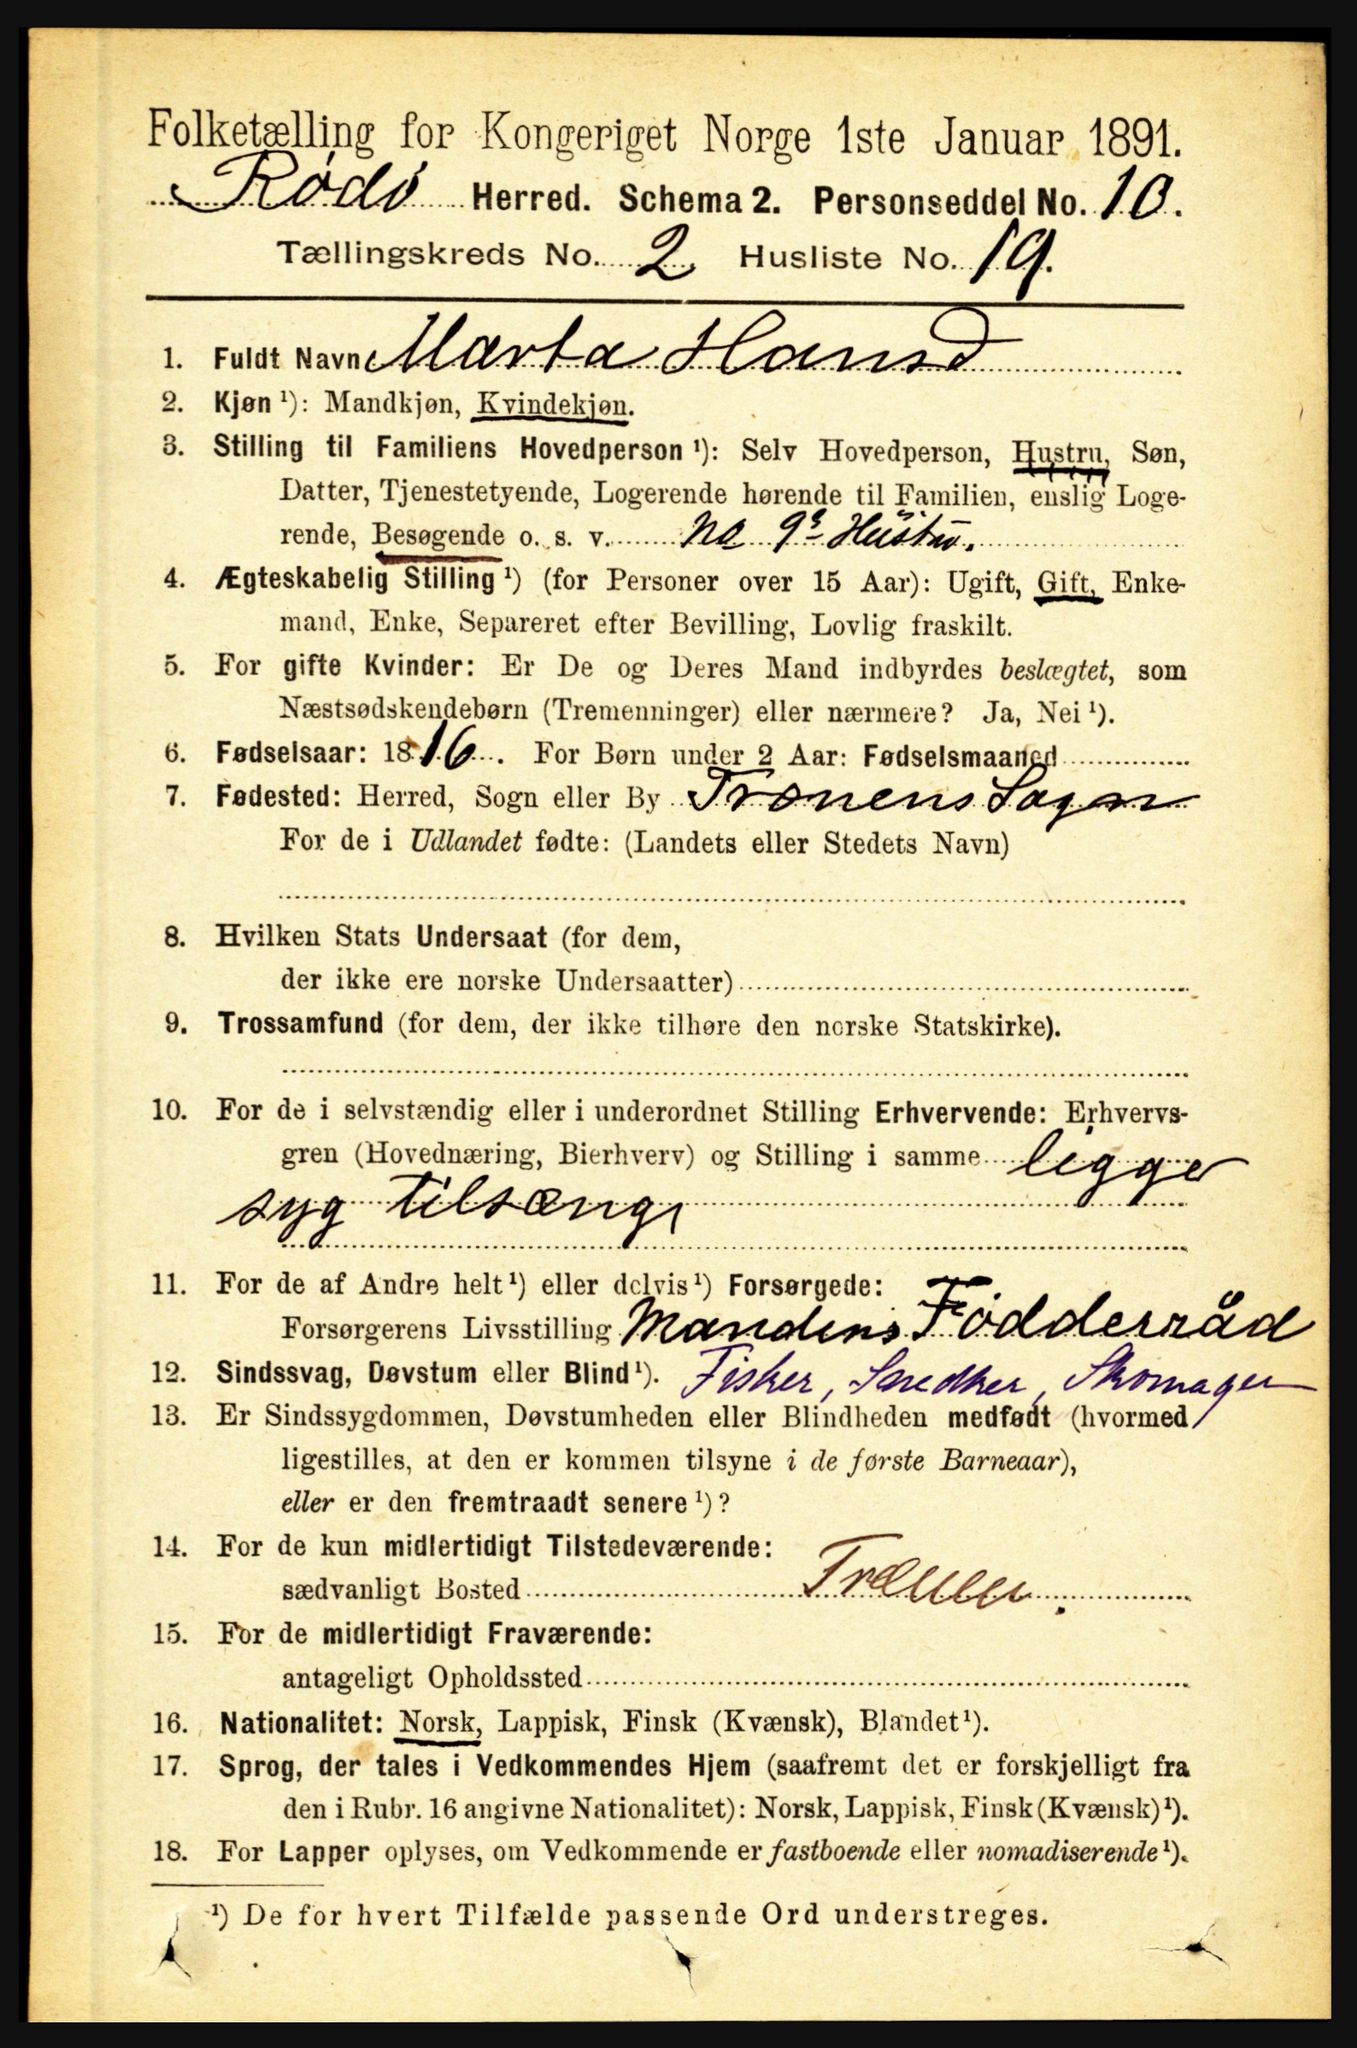 Folketælling for Kongeriget Norge 1ste Januar 1891.
Rødø Herred. Schema 2. Personseddel No. 10.
Tællingskreds No. 2 Husliste No. 19.
1. Fuldt Navn Marta Hansd
2. Kjøn ¹): Mandkjøn, Kvindekjøn.
3. Stilling til Familiens Hovedperson ¹): Selv Hovedperson, Hustru, Søn,
Datter, Tjenestetyende, Logerende hørende til Familien, enslig Loge-
rende, Besøgende o. s. v. No 9s Hustru.
4. Ægteskabelig Stilling ¹) (for Personer over 15 Aar): Ugift, Gift, Enke-
mand, Enke, Separeret efter Bevilling, Lovlig fraskilt.
5. For gifte Kvinder: Er De og Deres Mand indbyrdes beslægtet, som
Næstsødskendebørn (Tremenninger) eller nærmere? Ja, Nei ¹).
6. Fødselsaar: 1816. For Børn under 2 Aar: Fødselsmaaned
7. Fødested: Herred, Sogn eller By Trænens Sogn
For de i Udlandet fødte: (Landets eller Stedets Navn)
8. Hvilken Stats Undersaat (for dem,
der ikke ere norske Undersaatter)
9. Trossamfund (for dem, der ikke tilhøre den norske Statskirke).
10. For de i selvstændig eller i underordnet Stilling Erhvervende: Erhvervs-
gren (Hovednæring, Bierhverv) og Stilling i samme ligger
syg tilsængs
11. For de af Andre helt ¹) eller delvis ¹) Forsørgede:
Forsørgerens Livsstilling Mandens Fødderråd
12. Sindssvag, Døvstum eller Blind ¹). Fisker, Snedker, Skomager
13. Er Sindssygdommen, Døvstumheden eller Blindheden medfødt (hvormed
ligestilles, at den er kommen tilsyne i de første Barneaar),
eller er den fremtraadt senere ¹)?
14. For de kun midlertidigt Tilstedeværende:
sædvanligt Bosted Trænen.
15. For de midlertidigt Fraværende:
antageligt Opholdssted
16. Nationalitet: Norsk, Lappisk, Finsk (Kvænsk), Blandet ¹).
17. Sprog, der tales i Vedkommendes Hjem (saafremt det er forskjelligt fra
den i Rubr. 16 angivne Nationalitet): Norsk, Lappisk, Finsk (Kvænsk) ¹).
18. For Lapper oplyses, om Vedkommende er fastboende eller nomadiserende ¹).
¹) De for hvert Tilfælde passende Ord understreges.